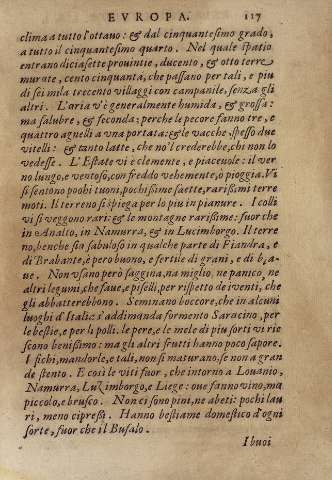 EVROPA. 117
clima a tutto l'ottauo: & dal cinquantesimo grado,
a tutto il cinquantesimo quarto. Nel quale spatio
entrano diciasette prouintie, ducento, & otto terre
murate, cento cinquanta, che passano per tali, e piu
di sei mila trecento villaggi con campanile, senza gli
altri. L'aria v'è generalmente humida, & grossa:
ma salubre, & feconda: perche le pecore fanno tre, e
quattro agnelli a vna portata: & le vacche spesso due
vitelli: & tanto latte, che nō'l crederebbe, chi non lo
vedesse. L'Estate vi è clemente, e piaceuole: il ver
no lungo, e ventoso, con freddo vehemente, ò pioggia. Vi
si sentono pochi tuoni, pochissime saette, rarissimi terre
moti. Il terreno si spiega per lo piu in pianure. I colli
vi si veggono rari: & le montagne rarissime: fuor che
in Analto, in Namurra, & in Lucimborgo. Il terre
no, benche sia sabuloso in qualche parte di Fiandra, e
di Brabante, è però buono, e fertile di grani, e di
ue. Non vsano però saggina, na miglio, ne panico, ne
altri legumi, che faue, e piselli, per rispetto dei venti, che
gli abbatterebbono. Seminano boccore, che in alcuni
luoghi d'Italia s'addimanda formento Saracino, per
le bestie, e per li polli. le pere, e le mele di piu sorti vi rie
scono benissimo: ma gli altri frutti hanno poco sapore.
I fichi, mandorle, e tali, non si maturano, se non a gran
de stento. E così le viti fuor, che intorno a Louanio,
Namurra, Luzimborgo, e Liege: oue fanno vino, ma
piccolo, e brusco. Non ci sono pini, ne abeti: pochi lau
ri, meno cipressi. Hanno bestiame domestico d'ogni
sorte, fuor che il Bufalo.
I buoi